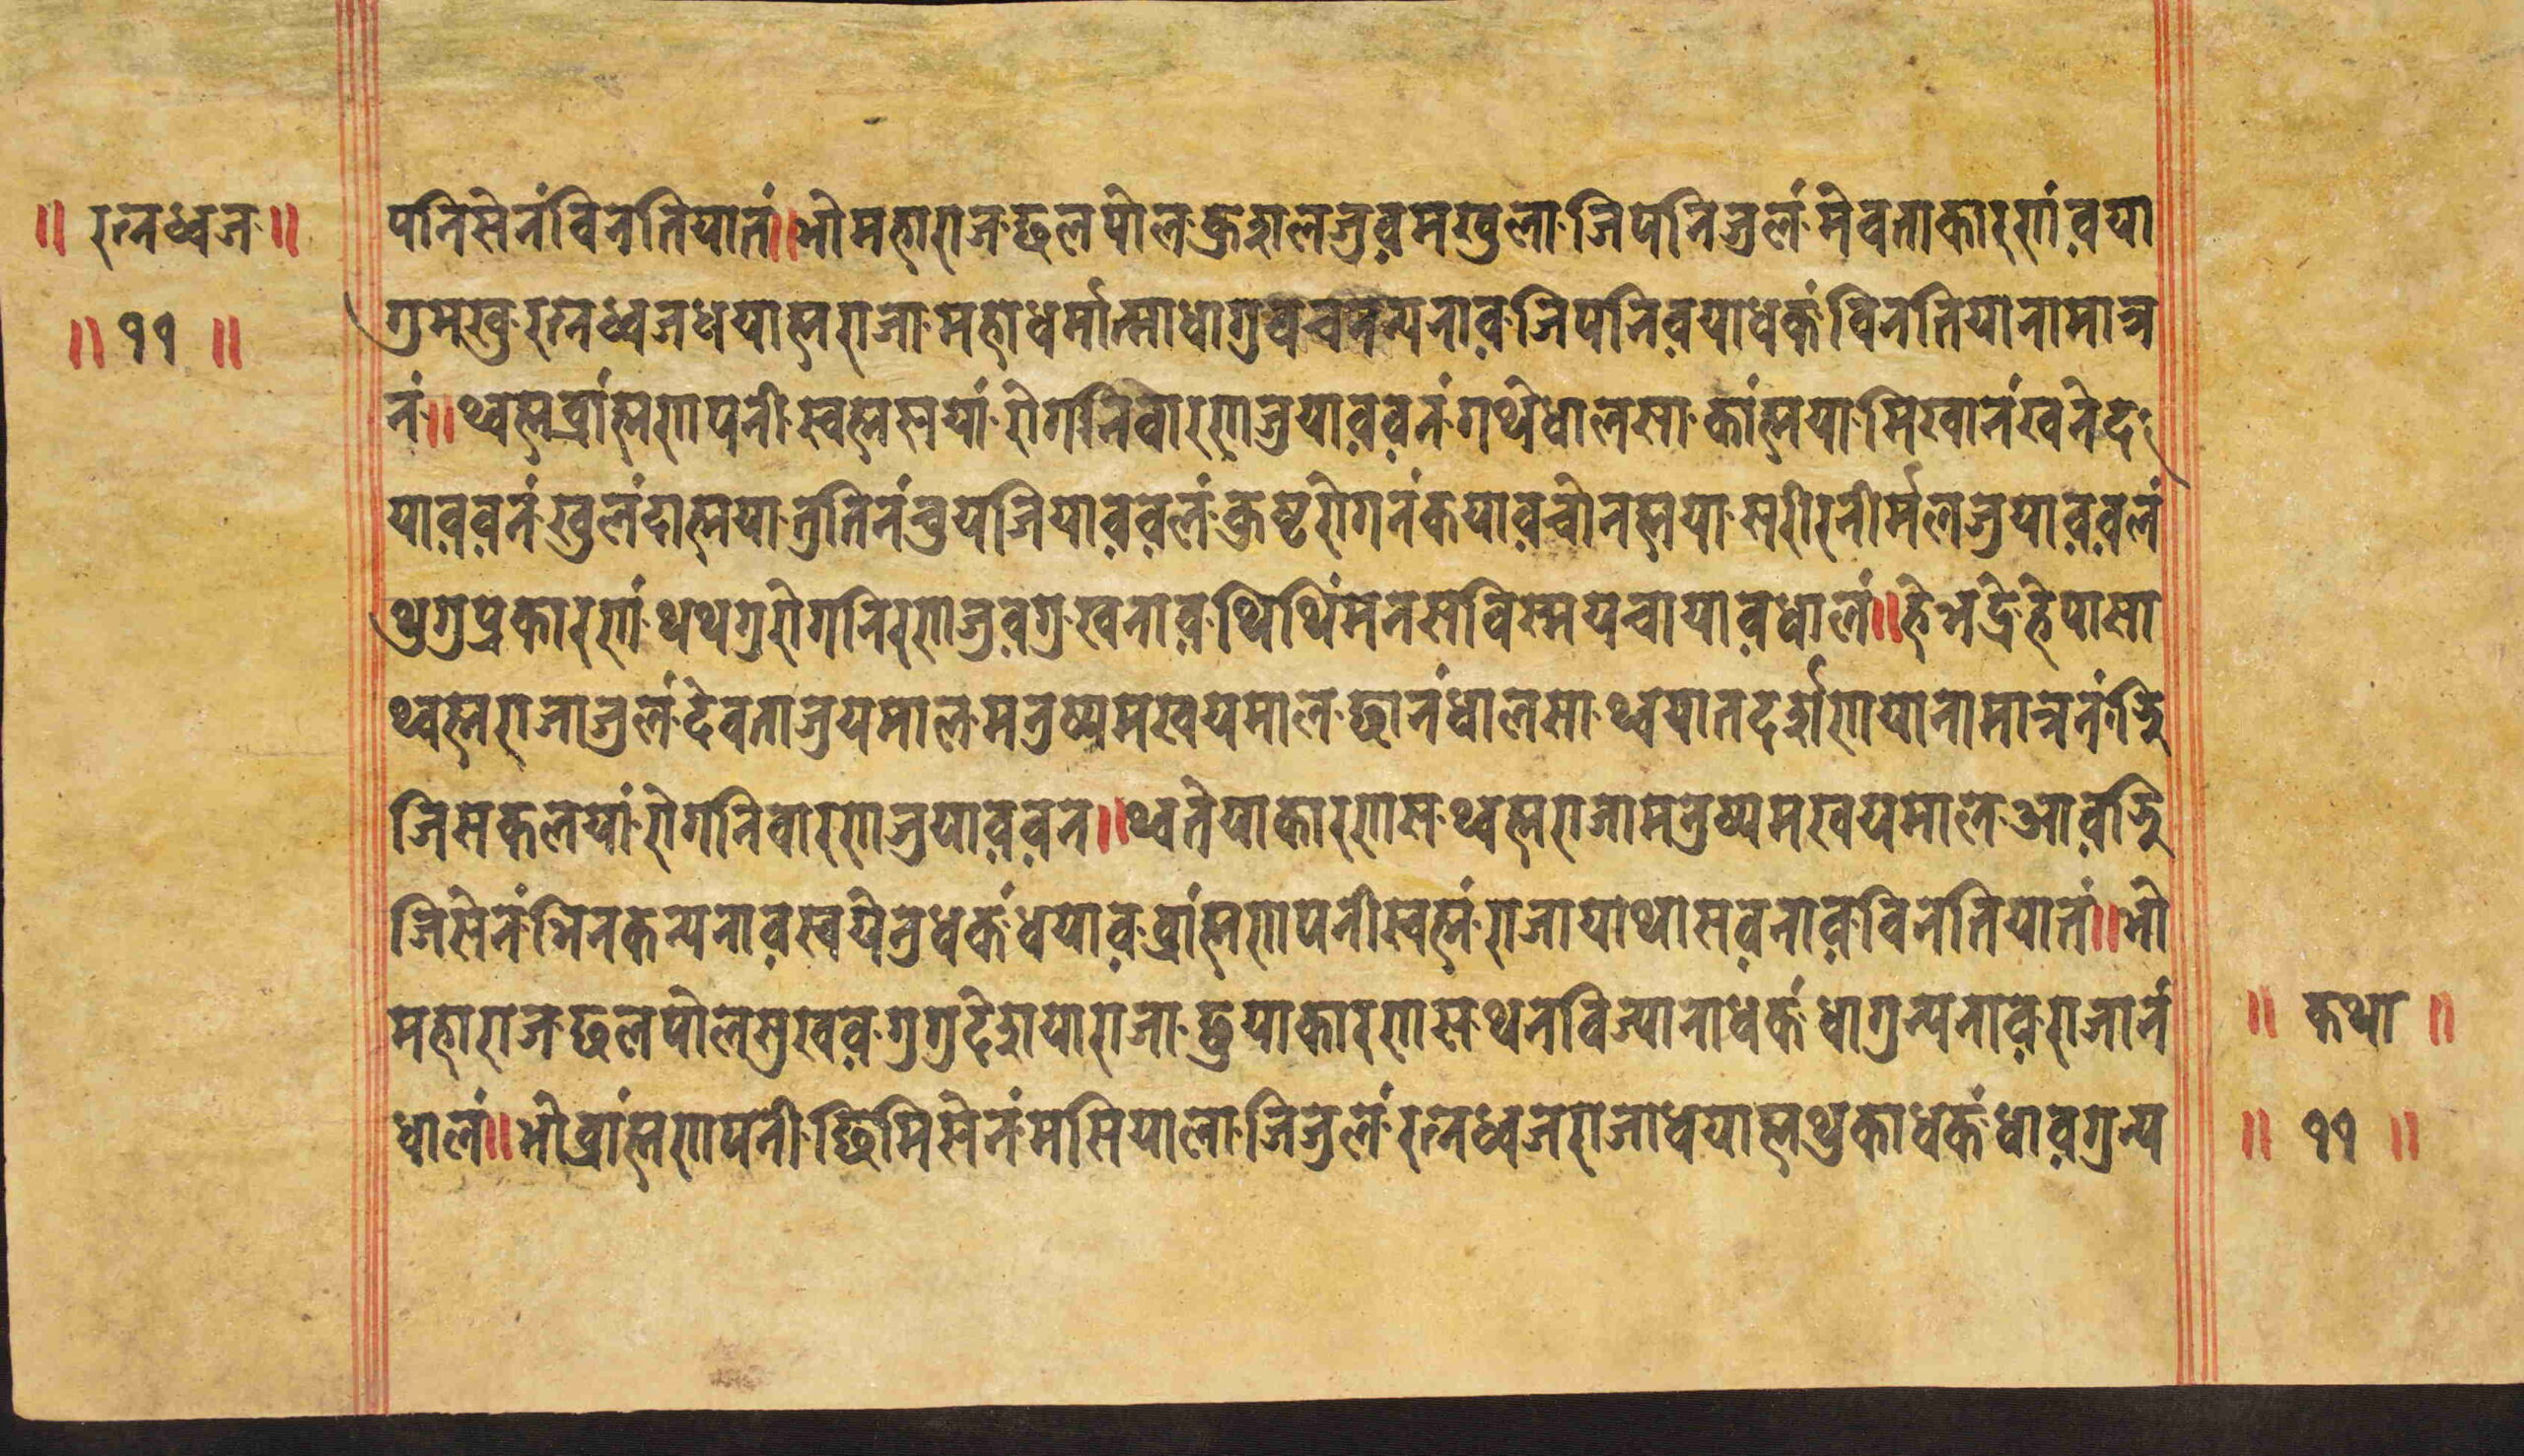 ॥ रत्नध्वज ॥
॥ ११ ॥
पनिसेनं विनतियातं ॥ भो महाराज छलपोल क्रुद्दाल जुव मखुला जिपनि जुलं सेवताकारणं वया
गु मखु रत्नध्वज धयाह्म राजा महाधर्मात्मा धागु वचन न्यनाव जिपनि वया धकं विनति याना मात्र
नं ॥ थ्वह्म ब्रांह्मणपनी स्वह्मस्यां रोगनिवारण जुयाव वनं गथे धालसा कांह्मया मिखानं खनेद
याव वनं खुलंदाह्मया तुतिनं चुयजियाव वलं कुष्टरोगनं कयाव चोनह्मया सरीर नीर्मल जुयाव वलं
थुगु प्रकारणं थथगु रोगनिरण जुवगु खनाव थिथिं मनस विस्मय चायाव धालं ॥ हे भद्रे हे पासा
थ्वह्म राजा जुलं देवता जुयमाल मनुष्य मखयमाल छानं धालसा थ्वयात दर्द्दाण याना मात्रनं झि
जि सकलयां रोगनिवारण जुयाव वन ॥ थ्वतेया कारणस थ्वह्म राजा मनुष्य मखयमाल आव झि
जिसेनं भिनक न्यनाव स्वयेनु धकं धयाव ब्रांह्मणपनी स्वह्मं राजाया थास वनाव विनतियातं ॥ भो
महाराज छलपोल सुखव गुगु देद्दाया राजा छुया कारणस थन विज्याना धकं धागु न्यनाव राजानं
धालं ॥ भो ब्रांह्मणपनी छिमिसेनं मसियाला जि जुलं रत्नध्वज राजा धयाह्म थुका धकं धावगु न्य
॥ कथा ॥
॥ ११ ॥